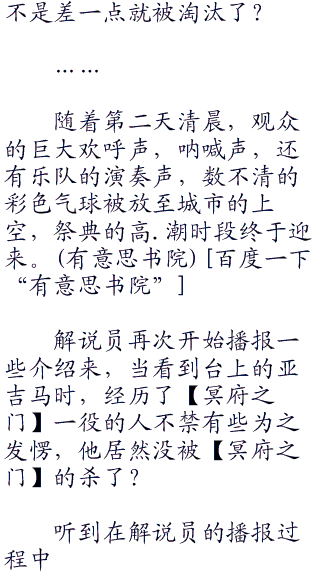 不是差一点就被淘汰了？
……
随着第二天清晨，观众
的巨大欢呼声，呐喊声，还
有乐队的演奏声，数不清的
彩色气球被放至城市的上
空，祭典的高.潮时段终于迎
来。(有意思书院)[百度一下
“有意思书院”]
解说员再次开始播报一
些介绍来，当看到台上的亚
吉马时，经历了【冥府之
门】一役的人不禁有些为之
发愣，他居然没被【冥府之
门】的杀了？
听到在解说员的播报过
程中